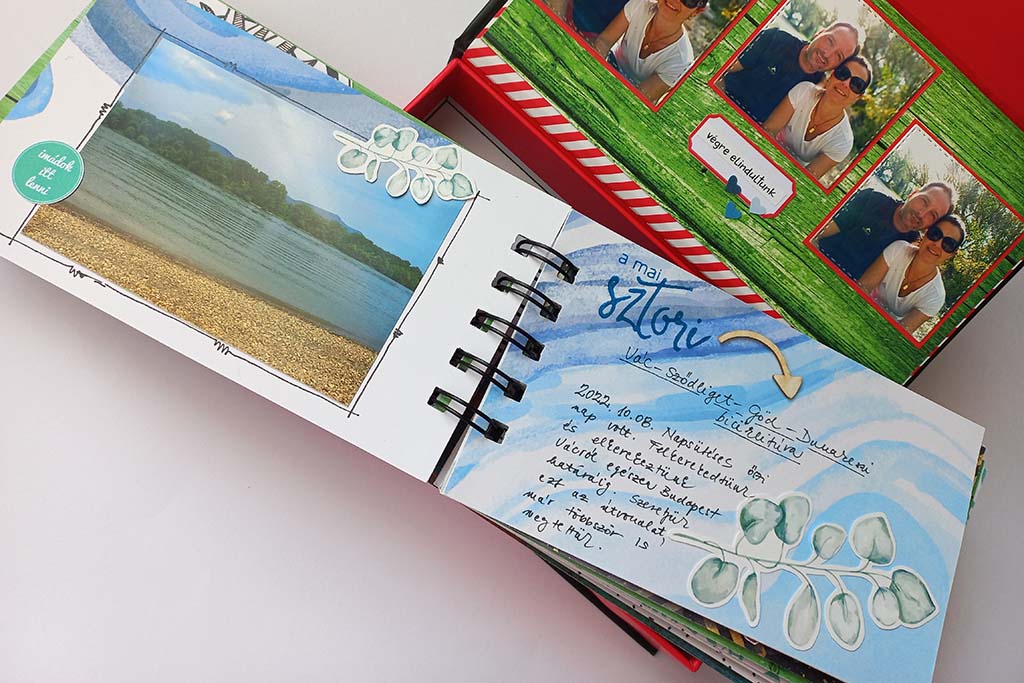 imádok
itt
lenni
végre elindultunk
a mai
sztori
Vác - Sződliget - Göd - Dunakeszi
biciklitúra
2022. 10. 08. Napsütéses őszi
nap volt. Felkerekedtünk
és eltekertünk
Váctól egészen Budapest
határáig. Szeretjük
ezt az útvonalat,
már többször is
megtettük.